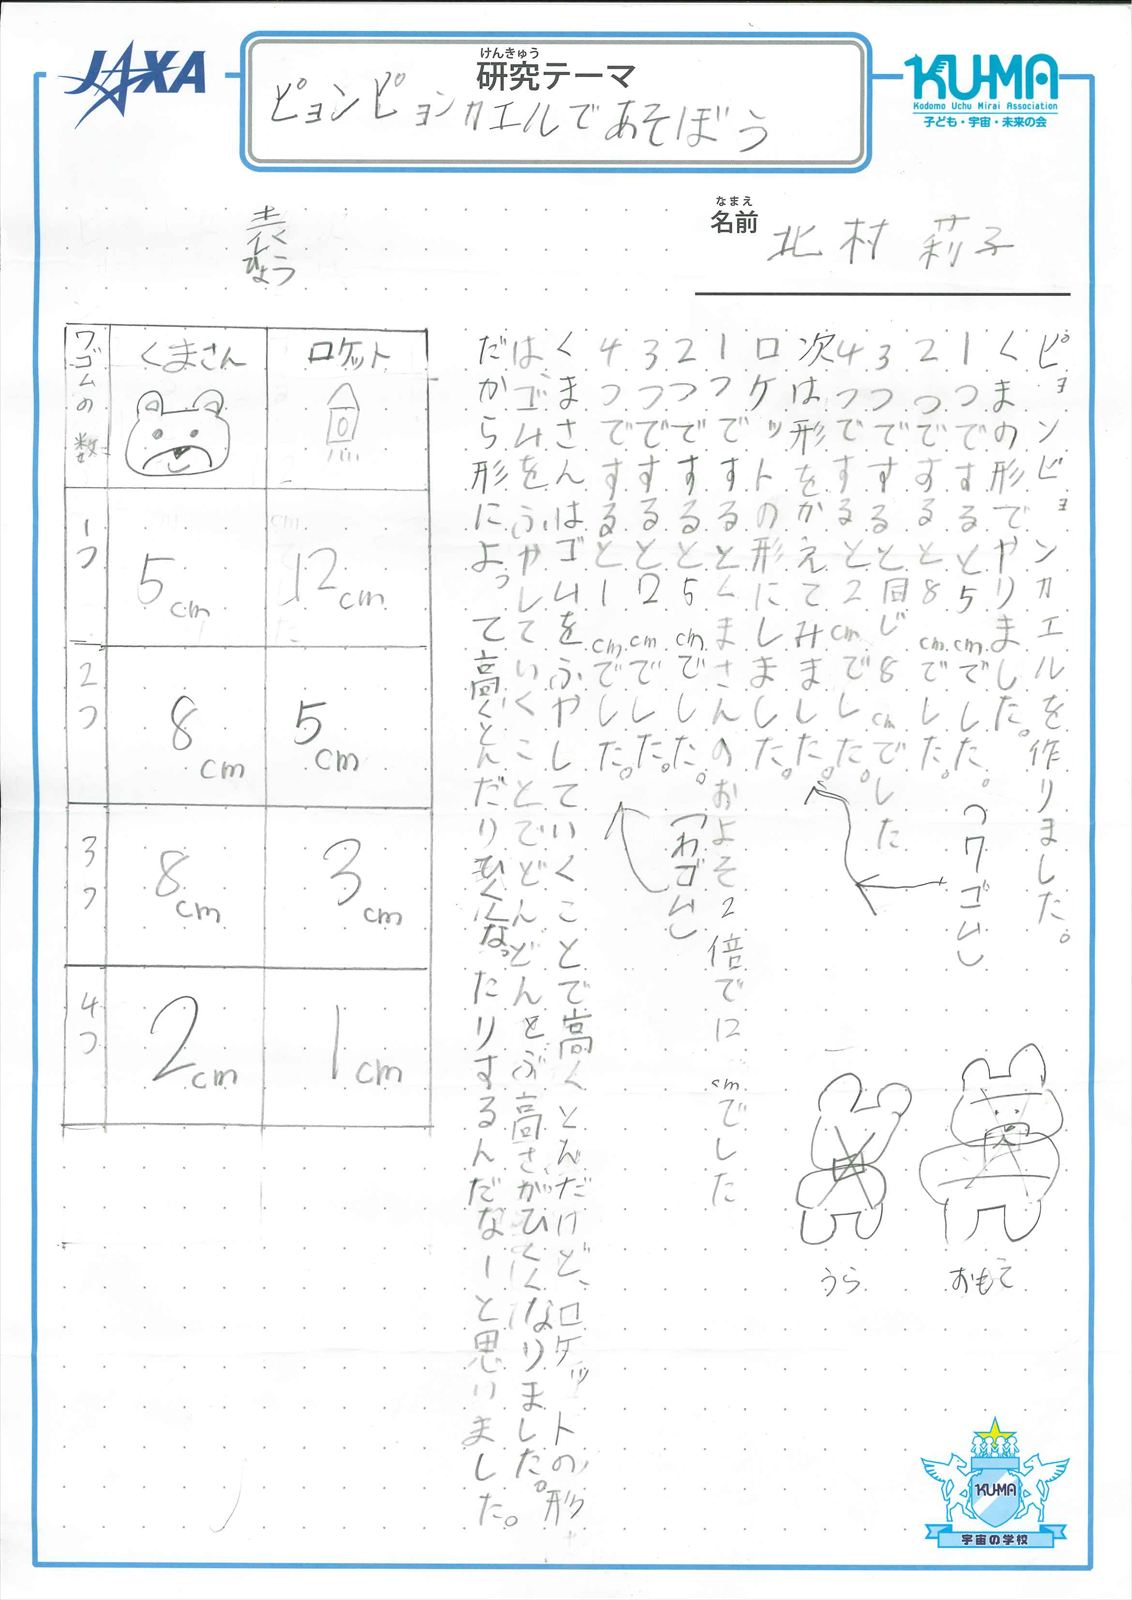 JAXA
けんきゅう
研究テーマ
ピョンピョンカエルであそぼう
KU-MA
Kodomo Uchu Mirai Association
子ども・宇宙・未来の会
なまえ
名前
北村 莉子
ピョンピョンカエルを作りました。
くまの形でやりました。
1つですると5cmでした。(ワゴム)
2つですると8cmでした。
3つですると同じ8cmでした
4つですると2cmでした。
次は形をかえてみました。
ロケットの形にしました。
1つでするとくまさんのおよそ2倍で12cmでした
2つですると5cmでした。(わゴム)
3つですると2cmでした。
4つですると1cmでした。
くまさんはゴムをふやしていくことで高くとんだけど、ロケットの形
は、ゴムをふやしていくことでどんどんとぶ高さがひくくなりました。
だから形によって高くとんだりひくくなったりするんだなーと思いました。
ひょう
ワゴムの数
くまさん
ロケット
1つ
5cm
12cm
2つ
8cm
5cm
3つ
8cm
3cm
4つ
2cm
1cm
おもて
うら
KU-MA
宇宙の学校